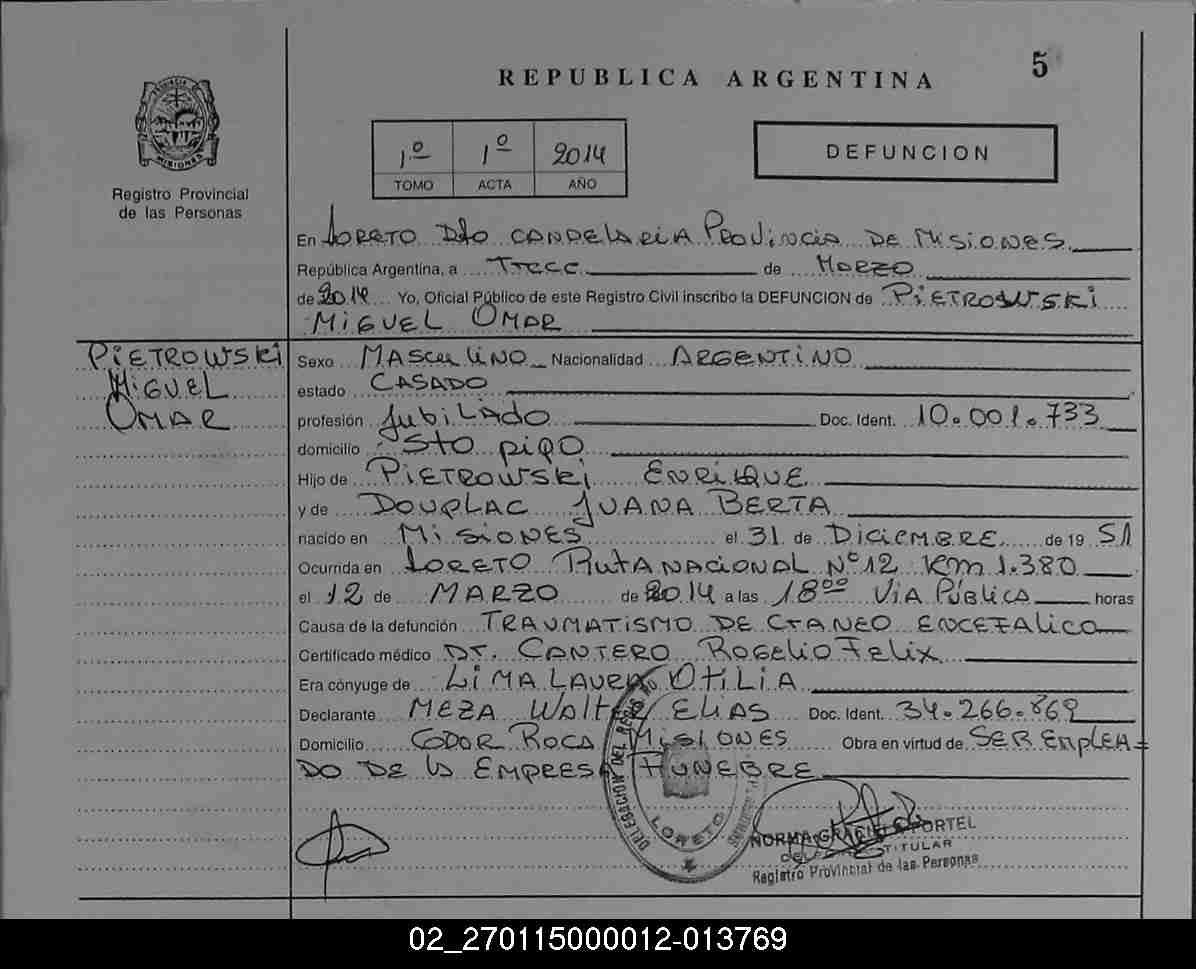 5
REPUBLICA ARGENTINA
PROVINCIA DE MISIONES
Registro Provincial
de las Personas
1º 1º 2014
TOMO ACTA AÑO
DEFUNCION
En LORETO Dto CANDELARIA PROVINCIA DE MISIONES
República Argentina, a Trece de MARZO
de 2014 Yo, Oficial Público de este Registro Civil inscribo la DEFUNCION de PIETROWSKI
MIGUEL OMAR
PIETROWSKI
MIGUEL
OMAR
Sexo MASCULINO Nacionalidad ARGENTINO
estado CASADO
profesión JUBILADO Doc. Ident. 10.001.733
domicilio Sto pipo
Hijo de PIETROWSKI ENRIQUE
y de JUANA BERTA
nacido en MISIONES el 31 de DICIEMBRE de 19 51
Ocurrida en LORETO RUTA NACIONAL Nº12 Km 1.380
el 12 de MARZO de 2014 a las 18⁰⁰ VIA PÚBLICA horas
Causa de la defunción TRAUMATISMO DE CRANEO ENCEFALICO
Certificado médico DR. CANTERO ROGELIO FELIX
Era cónyuge de LIMA LAURA OTILIA
Declarante MEZA WALTER ELIAS Doc. Ident. 34.266.869
Domicilio ROCA MISIONES Obra en virtud de SER EMPLEA=
DO DE LA EMPRESA FUNEBRE
DELEGACION DEL
LORETO
NORMA GRACIELA PORTEL
TITULAR
Registro Provincial de las Personas
02_270115000012-013769